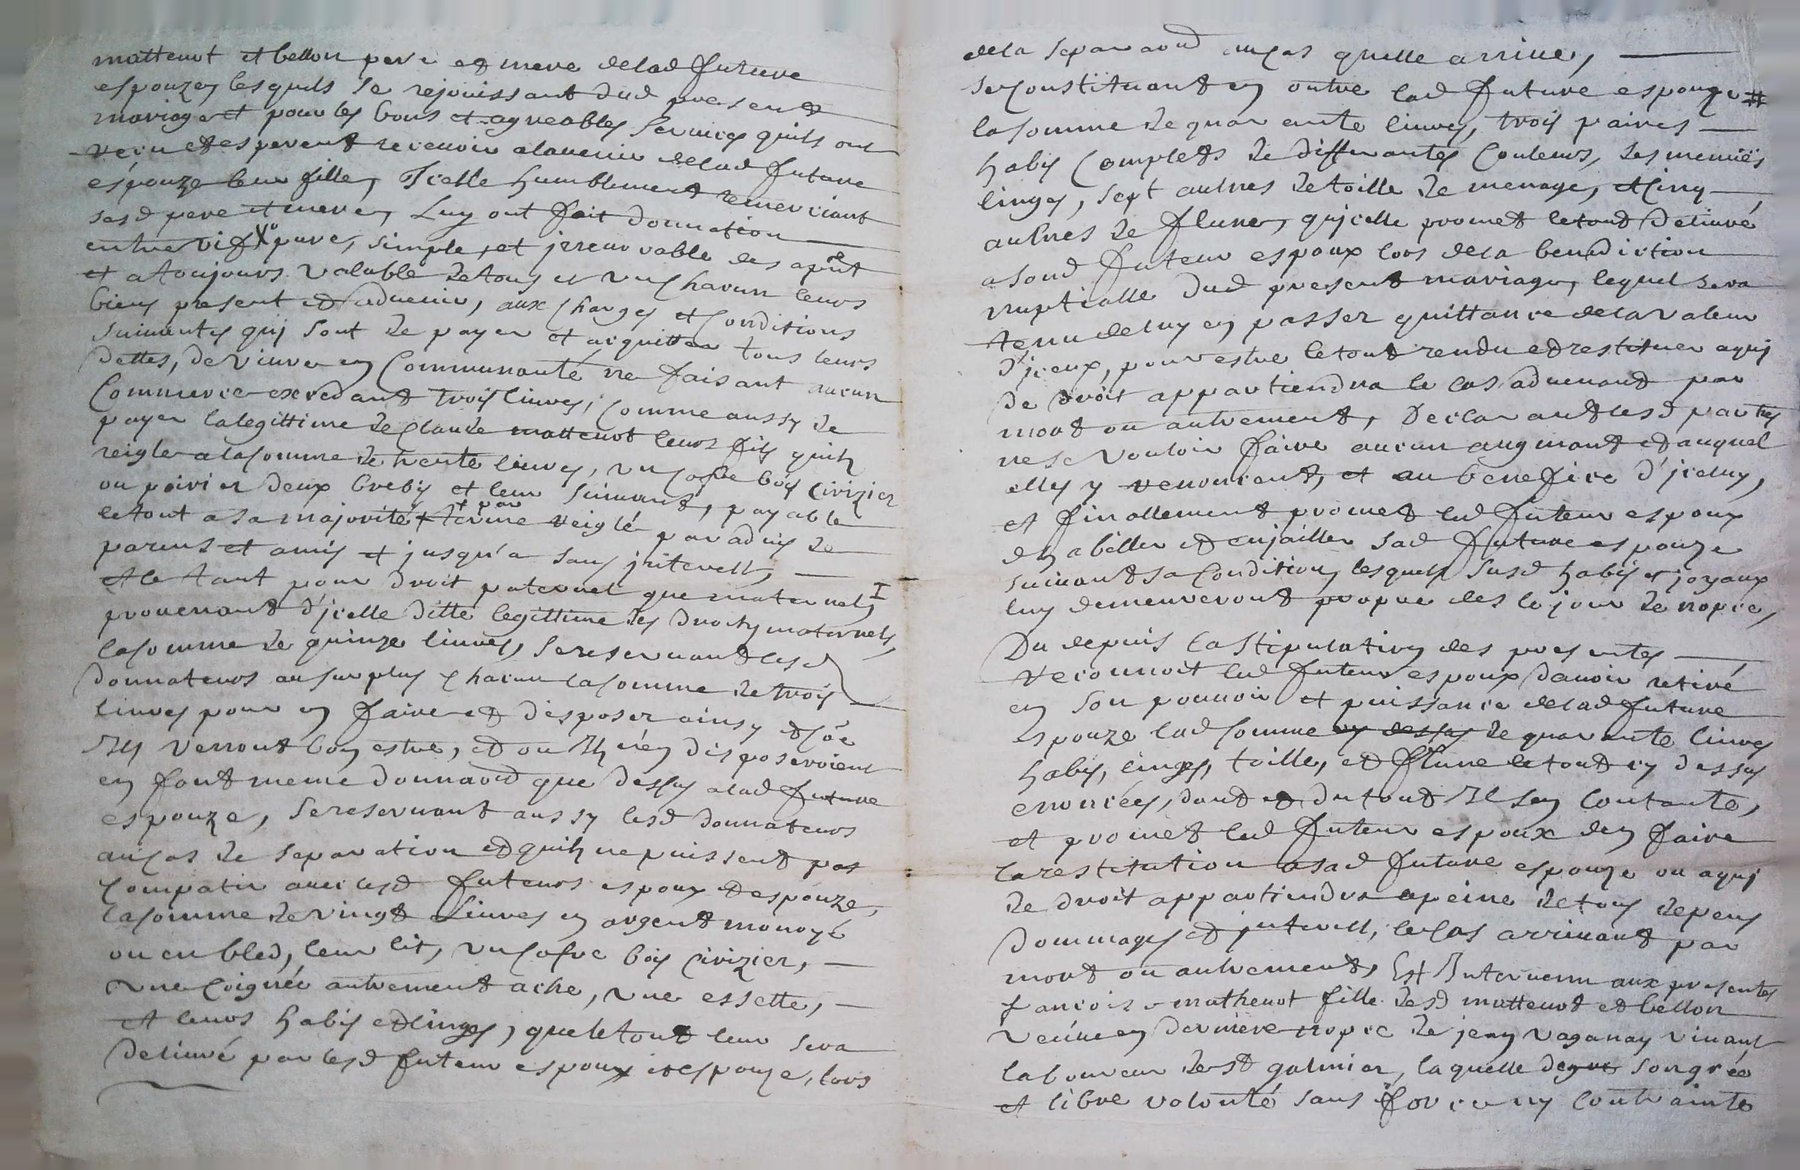 mattenot et bellon pere et mere delad future
espouzey lesquels se rejouissant dud present
mariage et pour les bons et agreables services quils ont
recu et esperent recevoir alavenir delad future
espouze leur fille, Icelle humblement remerciant
sesd pere et mere, Luy ont fait donnation
entre vifs pure, simple, et irrevocable des apnt
et atoujours valable de tous et un chacun leurs
biens present et advenir, aux charges et conditions
suivantes quj sont de payer et acquitter tous leurs
dettes, de vivre en Communauté ne faisant aucun
Commerce excedant trois livres, comme aussy de
payer lalegittime de Claude mattenot leur fils quilz
reigle alasomme de trente livres, un cofre bois cirizier
ou poirier deux brebis et leur suivant, payable
letout a sa majorité et par terme reiglé par advis de
parens et amis et jusqu'a sans jnterest,
et le tant pour droit paternel que maternel,
provenant d'jcelle ditte legittime des droits maternels,
lasomme de quinze livres, sereservant lesd
donnateurs ausurplus chacun lasomme de trois
livres pour en faire et disposer ainsy
Ilz verront bon estre, et ou Ilz n'en disposeroient
en font meme donnaond que dessus alad future
espouze, sereservant aussy lesd donnateurs
aucas de separation et quilz ne puissent pas
compatir avec lesd futeurs espoux et espouze,
lasomme de vingt Livres en argent monoyé
ou en bled, leur lit, un cofre bois cirizier,
une coignée autrement ache, une essette,
et leurs habis et linges, que letout leur sera
delivré par lesd futeur espoux et espouze, lors
dela separaond aucas quelle arrive,
se constituant en outre lad future espouze #
lasomme de quarente livres, trois paires
habis complets de differantes couleurs, ses menues
linges, sept aulnes de toille de menage, et cinq
aulnes de flune, qujcelle promet letout delivré
asond futeur espoux lors dela benediction
nuptialle dud present mariage, lequel sera
tenu deluy en passer quittance dela valeur
d'jceux, pour estre letout rendu et restituer aquj
de droit appartiendra le cas advenant par
mort ou autrement, Declarant lesd parties
ne se vouloir faire aucun augmant et auquel
elles y renoncent, et au benefice d'jceluy,
et finallement promet led futeur espoux
d'habiller et enjailler sad future espouze
suivant sa condition, lesquels susd habis et joyaux
luy demeureront propre des le jour de nopce,
Du depuis lastipulation des presentes
reconnoit led futeur espoux davoir retiré
en son pouvoir et puissance delad future
espouze lad somme cy dessus de quarente livres
habis, linges, toille, et flune letout cy dessus
enoncées, dont et dutout Il sen contante,
et promet led futeur espoux den faire
larestitution asad future espouze ou aquj
de droit appartiendra apeine de tous depens
dommages et jnterest, le cas arrivant par
mort ou autrement, Est Intervenu aux presentes
francoise mathenot fille desd mattenot et bellon
veuve en derniere nopce de jean vaganay vivant
laboureur de st galmier, laquelle de son gré
et libre volonté sans force ny contrainte